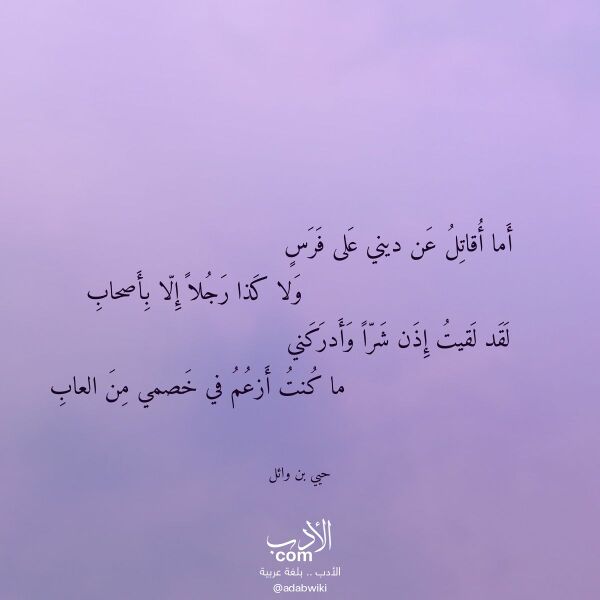 أَما أُقاتِلُ عَن ديني عَلى فَرَسٍ
وَلا كَذا رَجُلاً إِلّا بِأَصحابِ
لَقَد لَقيتُ إِذَن شَرّاً وَأَدرَكَني
ما كُنتُ أَزعُمُ في خَصمي مِنَ العابِ
حيي بن وائل
الأدب
.com
الأدب .. بلغة عربية
@adabwiki